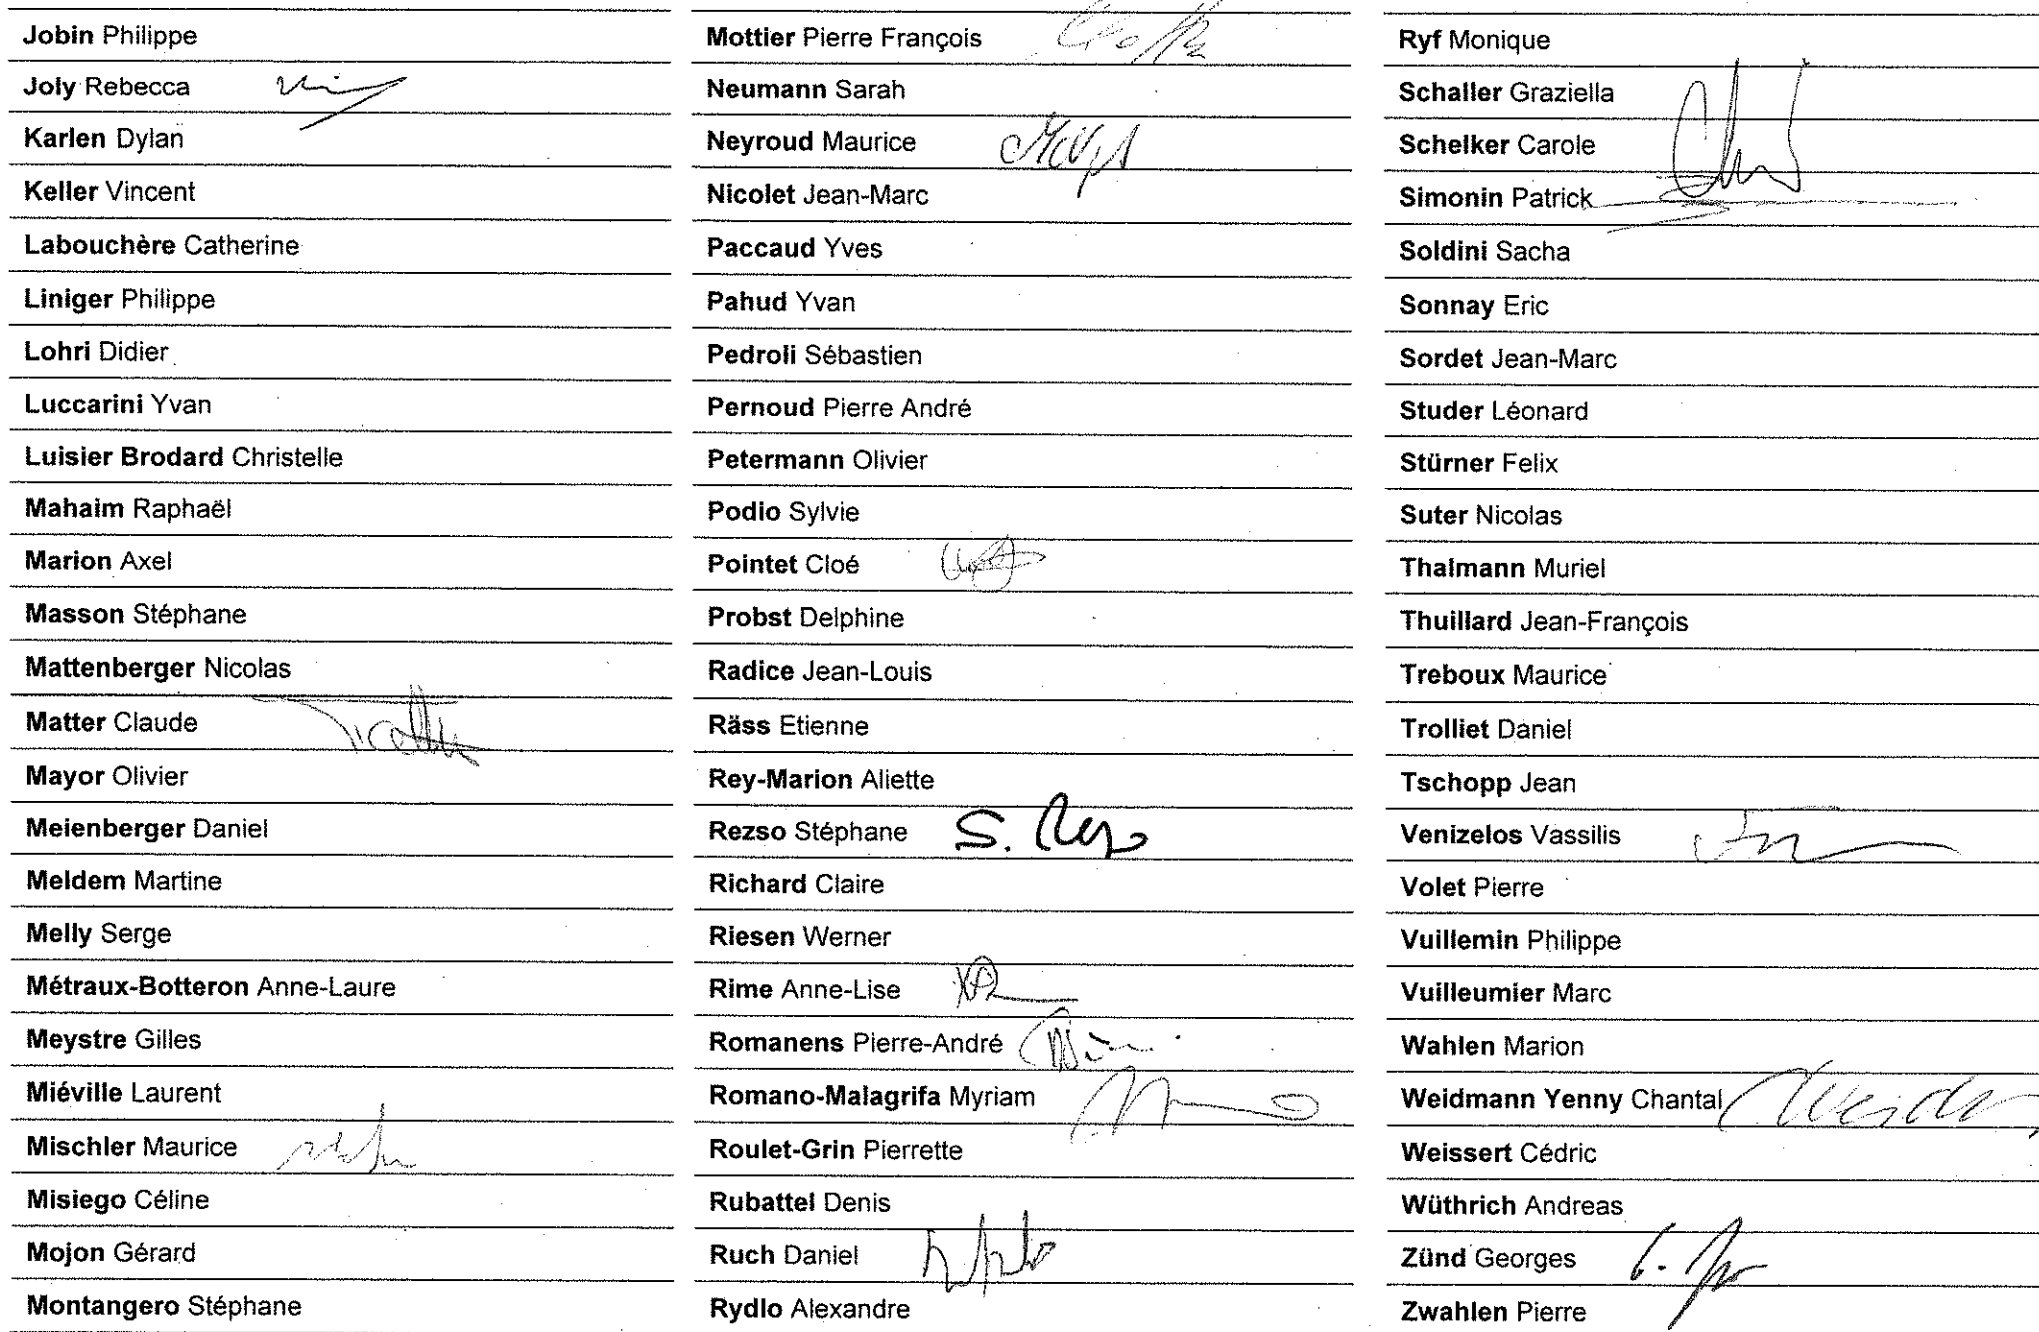 Jobin Philippe
Joly Rebecca
Karlen Dylan
Keller Vincent
Labouchère Catherine
Liniger Philippe
Lohri Didier
Luccarini Yvan
Luisier Brodard Christelle
Mahaim Raphaël
Marion Axel
Masson Stéphane
Mattenberger Nicolas
Matter Claude
Mayor Olivier
Meienberger Daniel
Meldem Martine
Melly Serge
Métraux-Botteron Anne-Laure
Meystre Gilles
Miéville Laurent
Mischler Maurice
Misiego Céline
Mojon Gérard
Montangero Stéphane
Mottier Pierre François
Neumann Sarah
Neyroud Maurice
Nicolet Jean-Marc
Paccaud Yves
Pahud Yvan
Pedroli Sébastien
Pernoud Pierre André
Petermann Olivier
Podio Sylvie
Pointet Cloé
Probst Delphine
Radice Jean-Louis
Räss Etienne
Rey-Marion Aliette
Rezso Stéphane
Richard Claire
Riesen Werner
Rime Anne-Lise
Romanens Pierre-André
Romano-Malagrifa Myriam
Roulet-Grin Pierrette
Rubattel Denis
Ruch Daniel
Rydlo Alexandre
Ryf Monique
Schaller Graziella
Schelker Carole
Simonin Patrick
Soldini Sacha
Sonnay Eric
Sordet Jean-Marc
Studer Léonard
Stürner Felix
Suter Nicolas
Thalmann Muriel
Thuillard Jean-François
Treboux Maurice
Trolliet Daniel
Tschopp Jean
Venizelos Vassilis
Volet Pierre
Vuillemin Philippe
Vuilleumier Marc
Wahlen Marion
Weidmann Yenny Chantal
Weissert Cédric
Wüthrich Andreas
Zünd Georges
Zwahlen Pierre